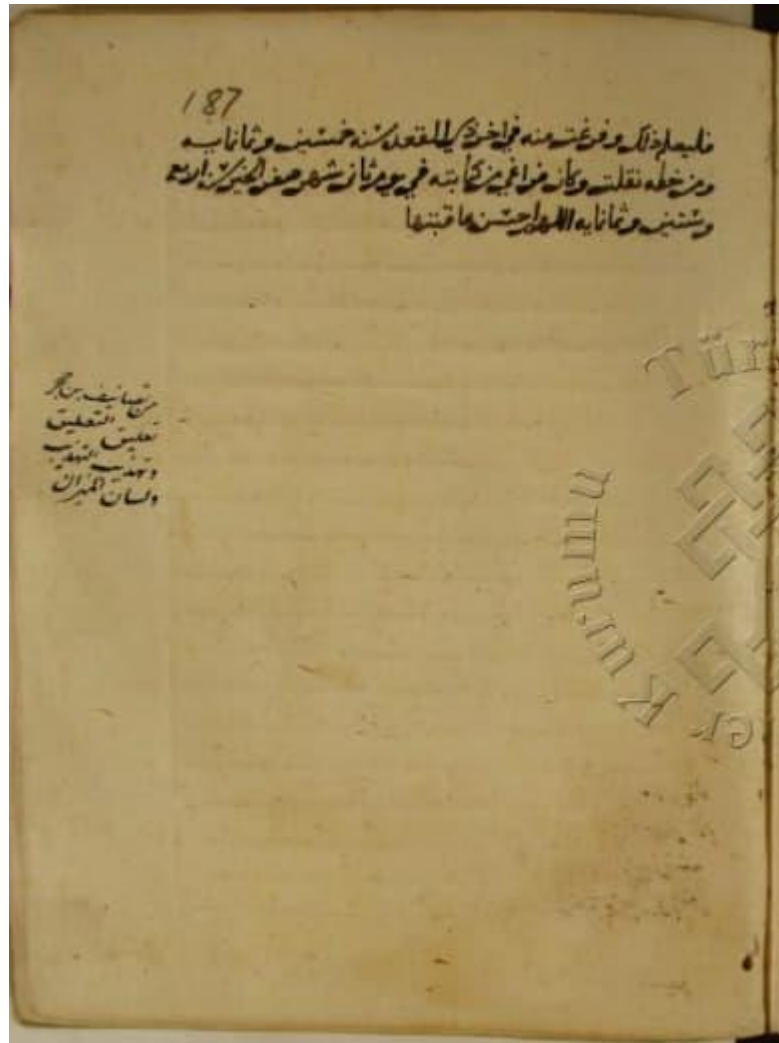 187
فليعلم ذلك وفرغت منه في اخر ذي القعدة سنة خمسين وثمانمايه
ومن خطه نقلت وكان فراغي من كتابته في يوم ثاني شهر صفر الخير سنة اربع
وستين وثمانمايه اللهم احسن عاقبتها
من تصانيف بن حجر
تعليق التعليق
وتهذيب التهذيب
ولسان الميزان